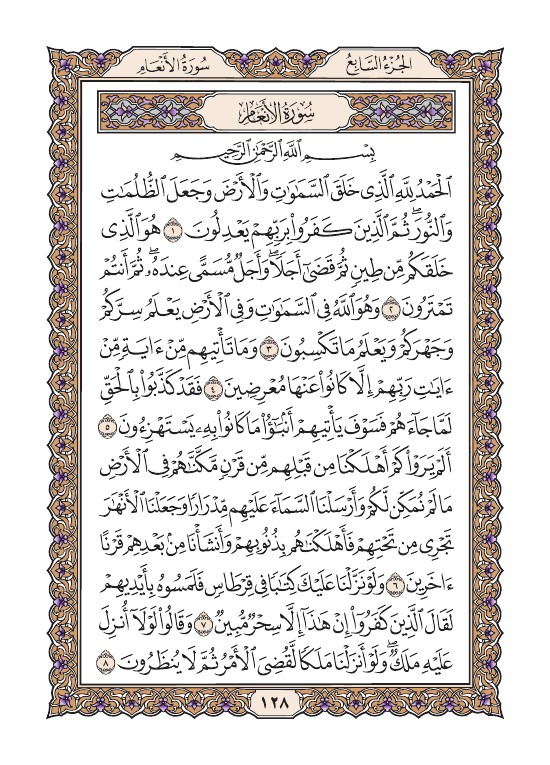 سُورَةُ الأَنْعَامِ
الجُزْءُ السَّابِعُ
سُورَةُ الأَنْعَامِ
بِسْمِ ٱللَّهِ ٱلرَّحْمَٰنِ ٱلرَّحِيمِ
ٱلْحَمْدُ لِلَّهِ ٱلَّذِى خَلَقَ ٱلسَّمَٰوَٰتِ وَٱلْأَرْضَ وَجَعَلَ ٱلظُّلُمَٰتِ
وَٱلنُّورَۖ ثُمَّ ٱلَّذِينَ كَفَرُوا۟ بِرَبِّهِمْ يَعْدِلُونَ ١ هُوَ ٱلَّذِى
خَلَقَكُم مِّن طِينٍ ثُمَّ قَضَىٰٓ أَجَلًاۖ وَأَجَلٌ مُّسَمًّى عِندَهُۥۖ ثُمَّ أَنتُمْ
تَمْتَرُونَ ٢ وَهُوَ ٱللَّهُ فِى ٱلسَّمَٰوَٰتِ وَفِى ٱلْأَرْضِ يَعْلَمُ سِرَّكُمْ
وَجَهْرَكُمْ وَيَعْلَمُ مَا تَكْسِبُونَ ٣ وَمَا تَأْتِيهِم مِّنْ ءَايَةٍ مِّنْ
ءَايَٰتِ رَبِّهِمْ إِلَّا كَانُوا۟ عَنْهَا مُعْرِضِينَ ٤ فَقَدْ كَذَّبُوا۟ بِٱلْحَقِّ
لَمَّا جَآءَهُمْ فَسَوْفَ يَأْتِيهِمْ أَنۢبَٰٓؤُا۟ مَا كَانُوا۟ بِهِۦ يَسْتَهْزِءُونَ ٥
أَلَمْ يَرَوْا۟ كَمْ أَهْلَكْنَا مِن قَبْلِهِم مِّن قَرْنٍ مَّكَّنَّٰهُمْ فِى ٱلْأَرْضِ
مَا لَمْ نُمَكِّن لَّكُمْ وَأَرْسَلْنَا ٱلسَّمَآءَ عَلَيْهِم مِّدْرَارًا وَجَعَلْنَا ٱلْأَنْهَٰرَ
تَجْرِى مِن تَحْتِهِمْ فَأَهْلَكْنَٰهُم بِذُنُوبِهِمْ وَأَنشَأْنَا مِنۢ بَعْدِهِمْ قَرْنًا
ءَاخَرِينَ ٦ وَلَوْ نَزَّلْنَا عَلَيْكَ كِتَٰبًا فِى قِرْطَاسٍ فَلَمَسُوهُ بِأَيْدِيهِمْ
لَقَالَ ٱلَّذِينَ كَفَرُوٓا۟ إِنْ هَٰذَآ إِلَّا سِحْرٌ مُّبِينٌ ٧ وَقَالُوا۟ لَوْلَآ أُنزِلَ
عَلَيْهِ مَلَكٌۖ وَلَوْ أَنزَلْنَا مَلَكًا لَّقُضِىَ ٱلْأَمْرُ ثُمَّ لَا يُنظَرُونَ ٨
١٢٨